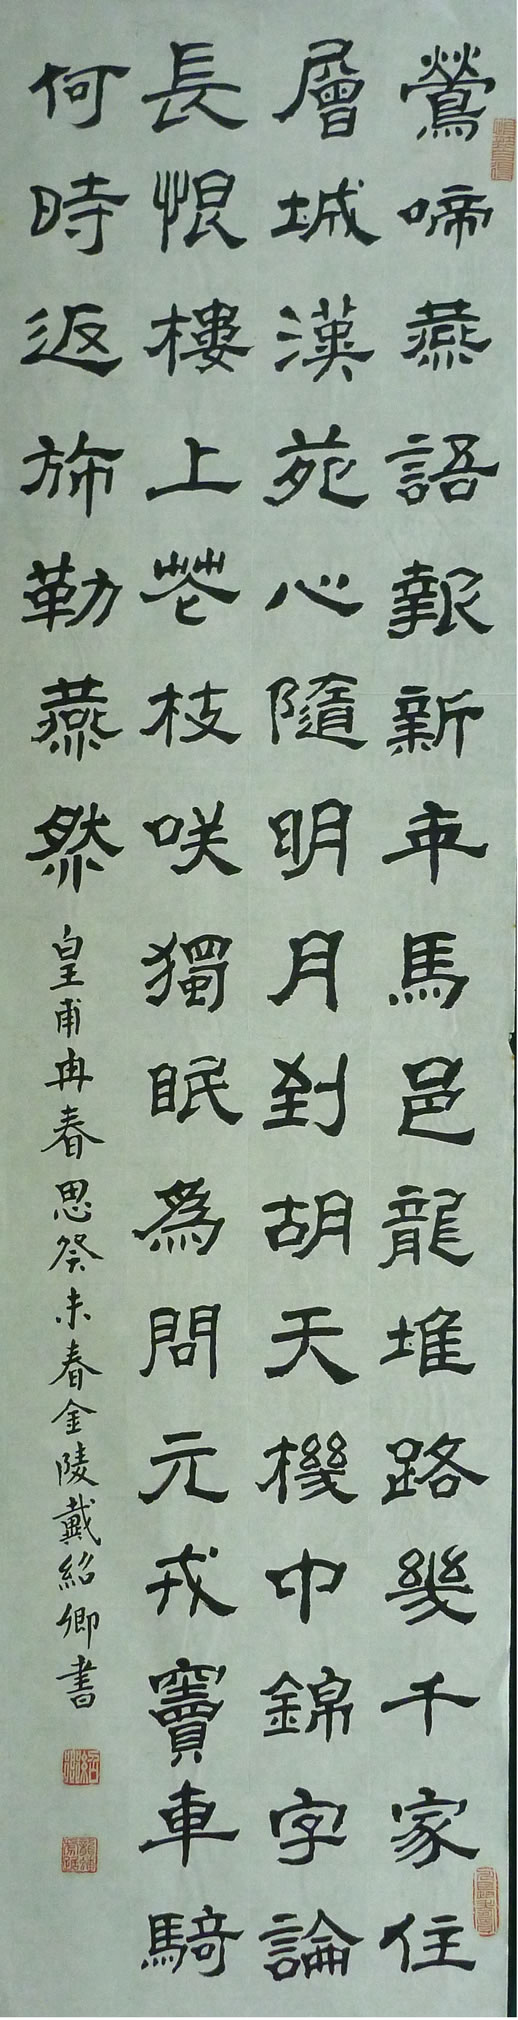 鶯啼燕語報新年馬邑龍堆路幾千家住
層城漢苑心隨明月到胡天機中錦字論
長恨樓上花枝咲獨眠為問元戎竇車騎
何時返斾勒燕然
皇甫冉春思癸未春金陵戴紹卿書